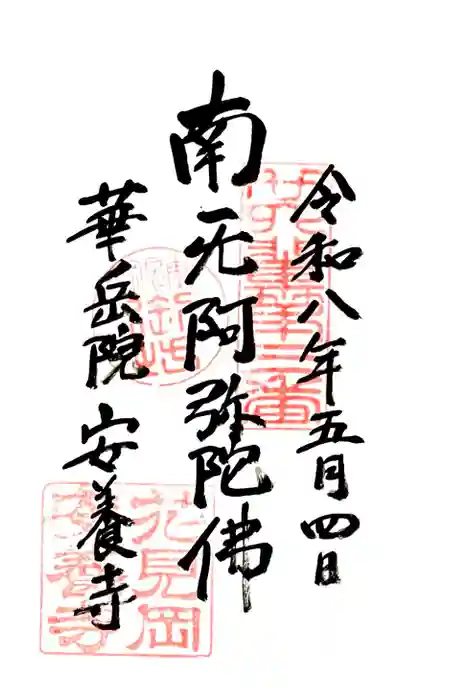 令和八年五月四日
南无阿弥陀佛
華岳院 安養寺
花見岡
安養寺